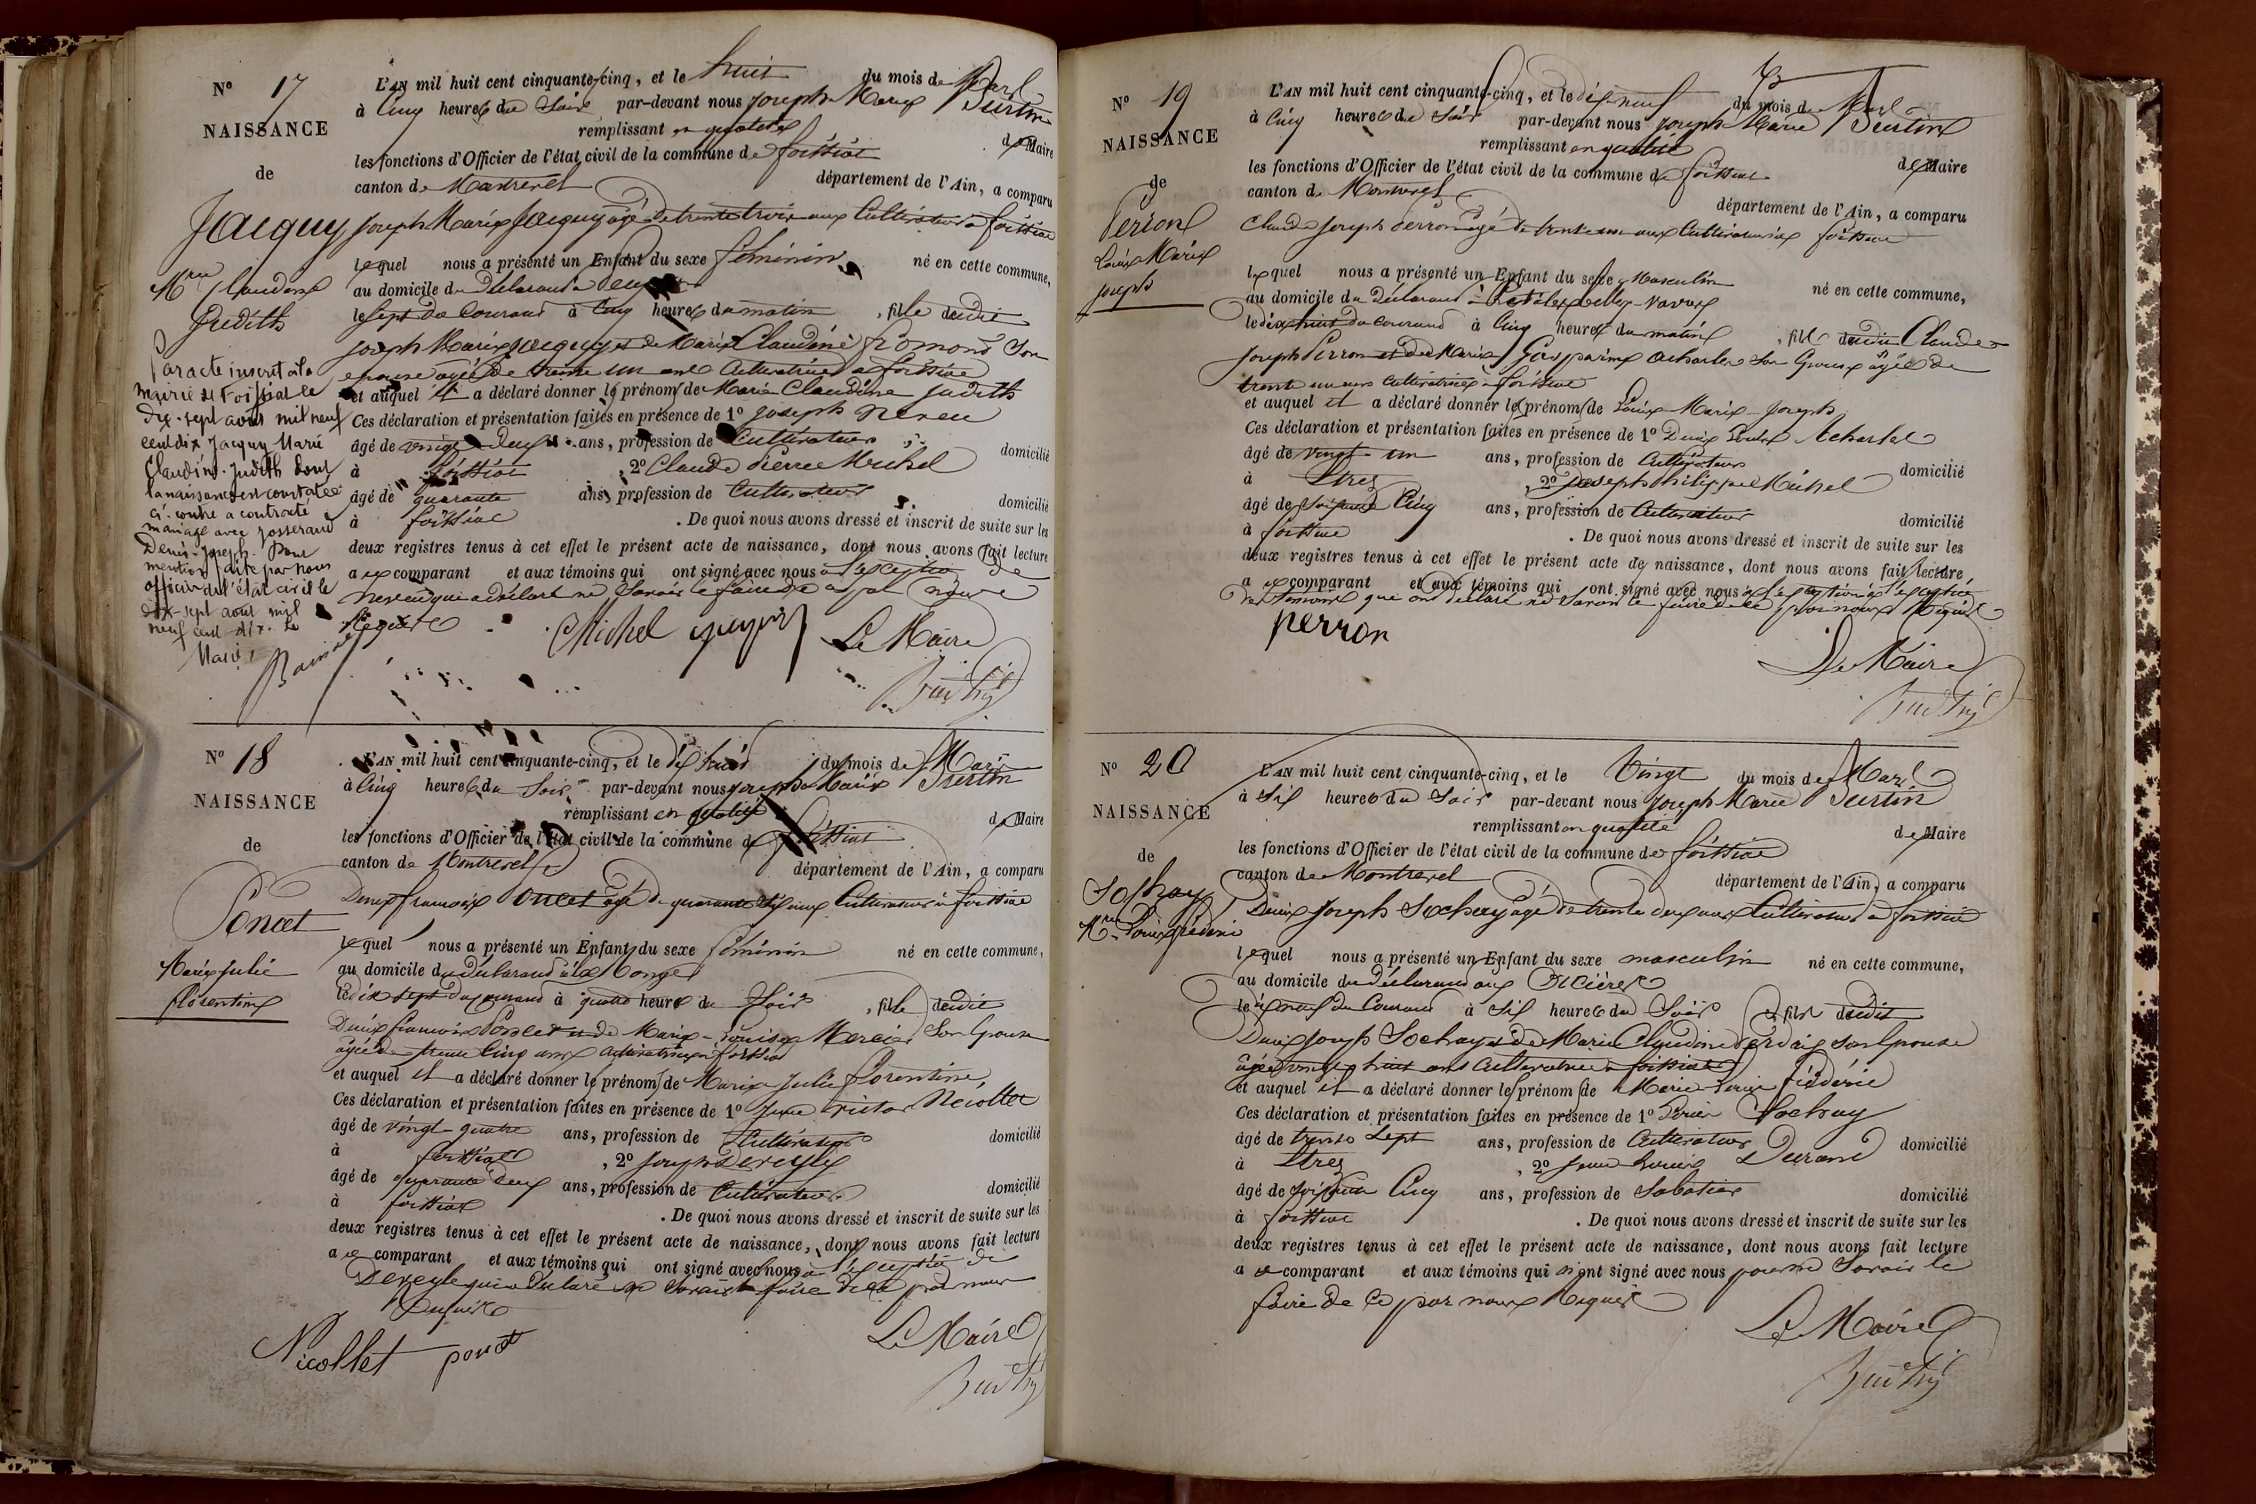 Nº 17
NAISSANCE
de
Jacquy
Mrie Claudine
Judith
Par acte inscrit à la
mairie de Foissiat le
dix-sept août mil neuf
cent dix Jacquy Marie
Claudine Judith dont
la naissance est constatée
ci-contre a contracté
mariage avec Josserand
Denis-Joseph. Pour
mention faite par nous
officier de l'état civil le
dix-sept août mil
neuf cent dix. Le
Maire,
L'AN mil huit cent cinquante-cinq, et le huit du mois de Mars
à Cinq heures du Soir par-devant nous Joseph Marie Burtin
remplissant en qualité de Maire
les fonctions d'Officier de l'état civil de la commune de foissiat
canton de Montrevel département de l'Ain, a comparu
Joseph Marie Jacquy âgé de trente trois ans Cultivateur à foissiat
lequel nous a présenté un Enfant du sexe féminin né en cette commune,
au domicile du déclarant
le Sept du Courant à Cinq heures du matin, fille dudit
Joseph Marie Jacquy et de Marie Claudine fromond Son
épouse âgée de trente un ans Cultivatrice à foissiat
et auquel il a déclaré donner les prénoms de Marie Claudine Judith
Ces déclaration et présentation faites en présence de 1º Joseph Neveu
âgé de vingt-deux ans, profession de Cultivateur domicilié
à foissiat, 2º Claude Pierre Michel
âgé de quarante ans, profession de Cultivateur domicilié
à foissiat. De quoi nous avons dressé et inscrit de suite sur les
deux registres tenus à cet effet le présent acte de naissance, dont nous avons fait lecture
au comparant et aux témoins qui ont signé avec nous à l'exception de
Neveu qui a déclaré ne Savoir le faire de ce par nous
Requis
Michel Jacquy Le Maire
Burtin
Nº 18
NAISSANCE
de
Poncet
Marie Julie
florentine
L'AN mil huit cent cinquante-cinq, et le dix huit du mois de Mars
à Cinq heures du Soir par-devant nous Joseph Marie Burtin
remplissant en qualité de Maire
les fonctions d'Officier de l'état civil de la commune de foissiat
canton de Montrevel département de l'Ain, a comparu
Denis françois Poncet âgé de quarante six ans Cultivateur à foissiat
lequel nous a présenté un Enfant du sexe féminin né en cette commune,
au domicile du déclarant à la
le dix sept du courant à quatre heures du Soir, fille dudit
Denis françois Poncet et de Marie-Louise Mercier Son épouse
âgée de trente Cinq ans Cultivatrice à foissiat
et auquel il a déclaré donner les prénoms de Marie Julie florentine
Ces déclaration et présentation faites en présence de 1º Jean Victor Nicollet
âgé de vingt-quatre ans, profession de Cultivateur domicilié
à foissiat, 2º Joseph Dereyle
âgé de quarante deux ans, profession de Cultivateur domicilié
à foissiat. De quoi nous avons dressé et inscrit de suite sur les
deux registres tenus à cet effet le présent acte de naissance, dont nous avons fait lecture
au comparant et aux témoins qui ont signé avec nous à l'exception de
Dereyle qui a déclaré ne Savoir le faire de ce par nous
Requis
Nicollet poncet Le Maire
Burtin
Nº 19
NAISSANCE
de
Perron
Louis Marie
Joseph
L'AN mil huit cent cinquante-cinq, et le dix neuf du mois de Mars
à Cinq heures du Soir par-devant nous Joseph Marie Burtin
remplissant en qualité de Maire
les fonctions d'Officier de l'état civil de la commune de foissiat
canton de Montrevel département de l'Ain, a comparu
Claude Joseph Perron âgé de trente un ans Cultivateur à foissiat
lequel nous a présenté un Enfant du sexe Masculin né en cette commune,
au domicile du Déclarant à
le dix huit du Courant à Cinq heures du matin, fils dudit Claude
Joseph Perron et de Marie Gasparine Acharles Son épouse âgée de
trente un ans Cultivatrice à foissiat
et auquel il a déclaré donner les prénoms de Louis Marie Joseph
Ces déclaration et présentation faites en présence de 1º Denis
âgé de vingt-un ans, profession de Cultivateur domicilié
à Etrez, 2º Joseph Philippe Michel
âgé de soixante Cinq ans, profession de Cultivateur domicilié
à foissiat. De quoi nous avons dressé et inscrit de suite sur les
deux registres tenus à cet effet le présent acte de naissance, dont nous avons fait lecture
au comparant et aux témoins qui ont signé avec nous à l'exception
des témoins qui ont déclaré ne Savoir le faire de ce par nous Requis
perron
Le Maire
Burtin
Nº 20
NAISSANCE
de
Sochay
Mrie Louis frédéric
L'AN mil huit cent cinquante-cinq, et le Vingt du mois de Mars
à Six heures du Soir par-devant nous Joseph Marie Burtin
remplissant en qualité de Maire
les fonctions d'Officier de l'état civil de la commune de foissiat
canton de Montrevel département de l'Ain, a comparu
Denis Joseph Sochay âgé de trente deux ans Cultivateur à foissiat
lequel nous a présenté un Enfant du sexe masculin né en cette commune,
au domicile du Déclarant aux
le dix neuf du Courant à Six heures du Soir, fils dudit
Denis Joseph Sochay et de Marie Claudine Son épouse
âgée vingt huit ans Cultivatrice à foissiat
et auquel il a déclaré donner les prénoms de Marie Louis frédéric
Ces déclaration et présentation faites en présence de 1º Sochay
âgé de trente Sept ans, profession de Cultivateur domicilié
à Etrez, 2º Jean Louis Durand
âgé de soixante Cinq ans, profession de Sabotier domicilié
à foissiat. De quoi nous avons dressé et inscrit de suite sur les
deux registres tenus à cet effet le présent acte de naissance, dont nous avons fait lecture
au comparant et aux témoins qui n'ont signé avec nous pour ne Savoir le
faire de ce par nous Requis
Le Maire
Burtin